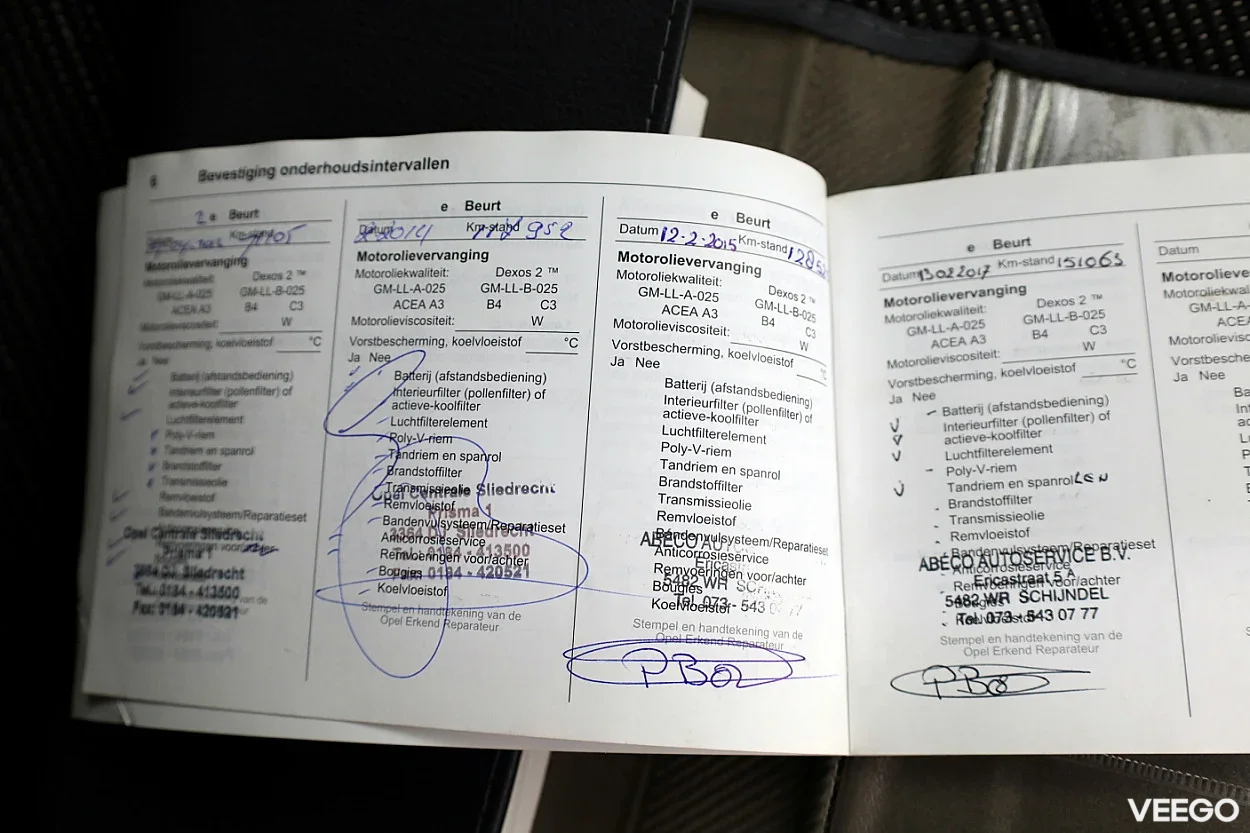 6 Bevestiging onderhoudsintervallen
2 e Beurt
Km-stand
Motorolievervanging
Motoroliekwaliteit: Dexos 2 ™
GM-LL-A-025 GM-LL-B-025
ACEA A3 B4 C3
Motorolieviscositeit: W
Vorstbescherming, koelvloeistof °C
Ja Nee
Batterij (afstandsbediening)
Interieurfilter (pollenfilter) of
actieve-koolfilter
Luchtfilterelement
Poly-V-riem
Tandriem en spanrol
Brandstoffilter
Transmissieolie
Remvloeistof
Bandenvulsysteem/Reparatieset
Anticorrosieservice
Opel Centrale Sliedrecht
Prisma 1
3364 DJ Sliedrecht
Tel.: 0184 - 413500
Fax: 0184 - 420521
e Beurt
Datum 2014 Km-stand 952
Motorolievervanging
Motoroliekwaliteit: Dexos 2 ™
GM-LL-A-025 GM-LL-B-025
ACEA A3 B4 C3
Motorolieviscositeit: W
Vorstbescherming, koelvloeistof °C
Ja Nee
Batterij (afstandsbediening)
Interieurfilter (pollenfilter) of
actieve-koolfilter
Luchtfilterelement
Poly-V-riem
Tandriem en spanrol
Brandstoffilter
Transmissieolie
Opel Centrale Sliedrecht
Remvloeistof
Prisma 1
Bandenvulsysteem/Reparatieset
3364 DJ Sliedrecht
Anticorrosieservice
Remvoeringen voor/achter
0184 - 413500
Bougies
0184 - 420521
Koelvloeistof
Stempel en handtekening van de
Opel Erkend Reparateur
e Beurt
Datum 12-2-2015 Km-stand
Motorolievervanging
Motoroliekwaliteit: Dexos 2 ™
GM-LL-A-025 GM-LL-B-025
ACEA A3 B4 C3
Motorolieviscositeit: W
Vorstbescherming, koelvloeistof °C
Ja Nee
Batterij (afstandsbediening)
Interieurfilter (pollenfilter) of
actieve-koolfilter
Luchtfilterelement
Poly-V-riem
Tandriem en spanrol
Brandstoffilter
Transmissieolie
Remvloeistof
Bandenvulsysteem/Reparatieset
ABECO
Anticorrosieservice
Remvoeringen voor/achter
5482 WR
Bougies
Tel. 073 - 543 77
Koelvloeistof
Stempel en handtekening van de
Opel Erkend Reparateur
e Beurt
Datum 13022017 Km-stand 151063
Motorolievervanging
Motoroliekwaliteit: Dexos 2 ™
GM-LL-A-025 GM-LL-B-025
ACEA A3 B4 C3
Motorolieviscositeit: W
Vorstbescherming, koelvloeistof °C
Ja Nee
Batterij (afstandsbediening)
Interieurfilter (pollenfilter) of
actieve-koolfilter
Luchtfilterelement
Poly-V-riem
Tandriem en spanrol
Brandstoffilter
Transmissieolie
Remvloeistof
Bandenvulsysteem/Reparatieset
ABECO AUTOSERVICE B.V.
Anticorrosieservice
Ericastraat 5 A
Remvoeringen voor/achter
5482 WR SCHIJNDEL
Bougies
Tel. 073 - 543 07 77
Koelvloeistof
Stempel en handtekening van de
Opel Erkend Reparateur
Datum
Motorolieve
Motoroliekwal
GM-LL-A-0
ACE
Motorolievis
Vorstbesche
Ja Nee
VEEGO